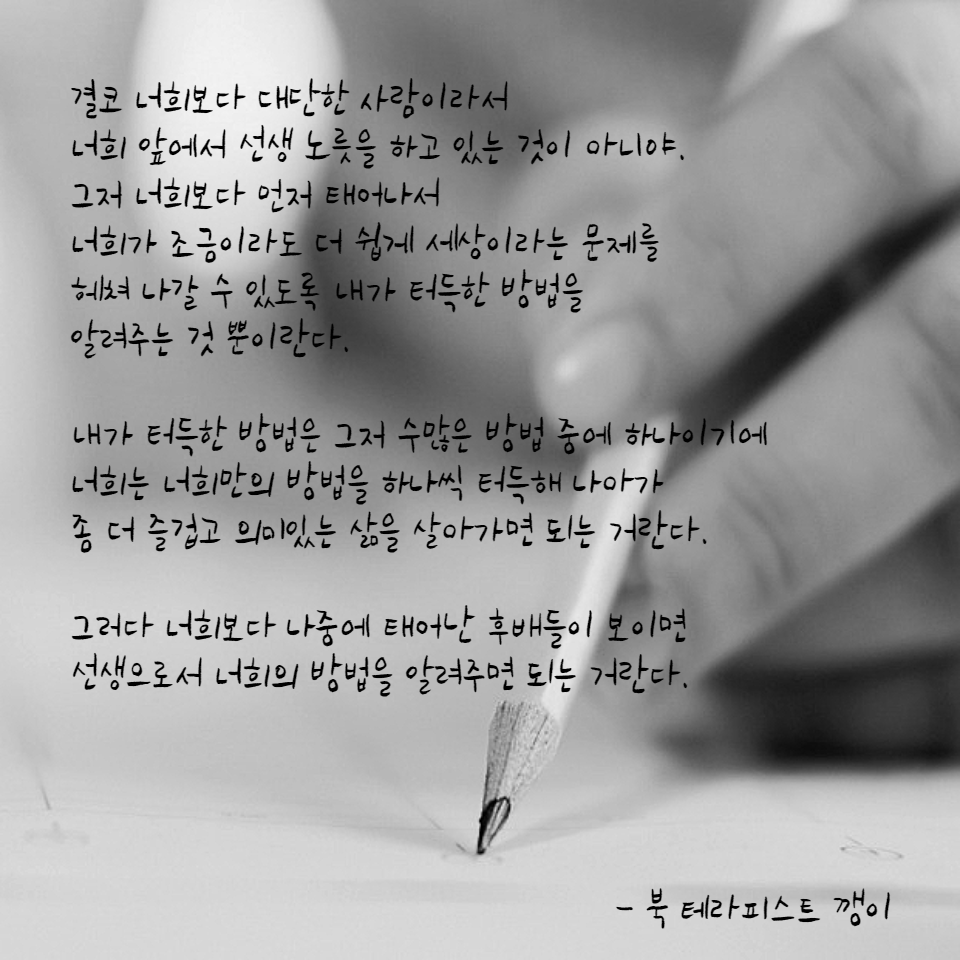 결코 너희보다 대단한 사람이라서
너희 앞에서 선생 노릇을 하고 있는 것이 아니야.
그저 너희보다 먼저 태어나서
너희가 조금이라도 더 쉽게 세상이라는 문제를
헤쳐 나갈 수 있도록 내가 터득한 방법을
알려주는 것 뿐이란다.
내가 터득한 방법은 그저 수많은 방법 중에 하나이기에
너희는 너희만의 방법을 하나씩 터득해 나아가
좀 더 즐겁고 의미있는 삶을 살아가면 되는 거란다.
그러다 너희보다 나중에 태어난 후배들이 보이면
선생으로서 너희의 방법을 알려주면 되는 거란다.
- 북 테라피스트 깽이